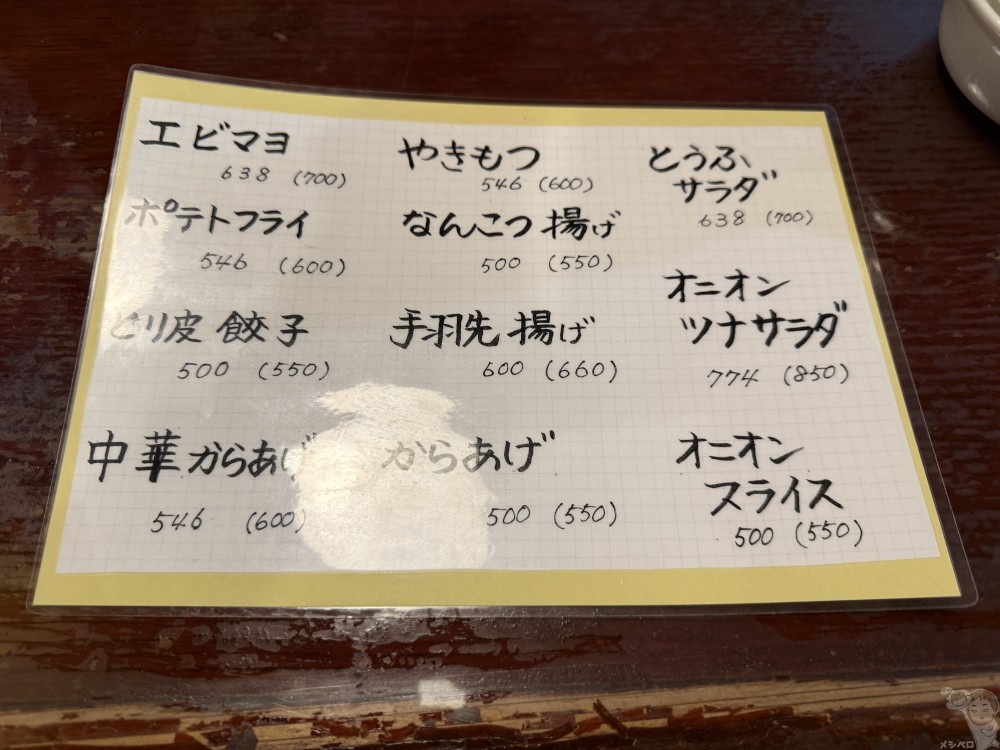 エビマヨ
638 (700)
ポテトフライ
546 (600)
とり皮 餃子
500 (550)
中華からあげ
546 (600)
やきもつ
546 (600)
なんこつ揚げ
500 (550)
手羽先揚げ
600 (660)
からあげ
500 (550)
とうふ
サラダ
638 (700)
オニオン
ツナサラダ
774 (850)
オニオン
スライス
500 (550)
メシペロ